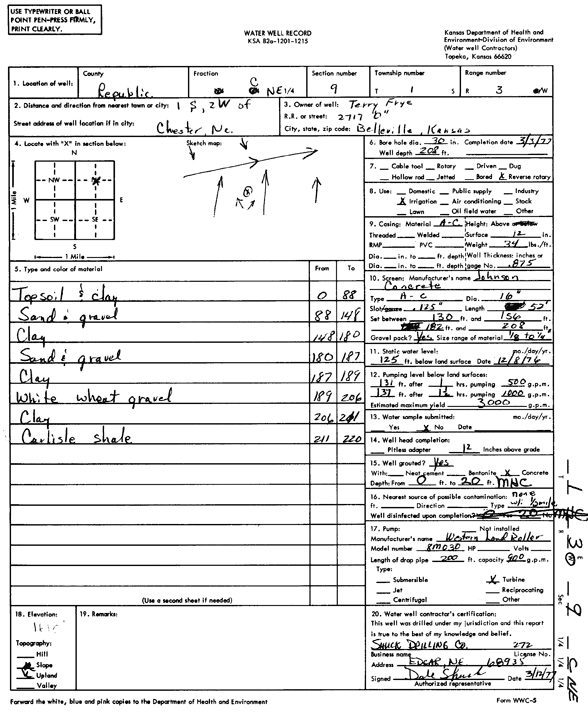 USE TYPEWRITER OR BALL
POINT PEN-PRESS FIRMLY,
PRINT CLEARLY.
WATER WELL RECORD
KSA 82a-1201-1215
Kansas Department of Health and
Environment-Division of Environment
(Water well Contractors)
Topeka, Kansas 66620
1. Location of well: County Republic Fraction C NE 1/4 Section number 9 Township number T 1 S Range number R 3 W
2. Distance and direction from nearest town or city: 1 S, 2W of
Street address of well location if in city: Chester, Ne.
3. Owner of well: Terry Frye
R.R. or street: 2717 "D"
City, state, zip code: Belleville, Kansas
4. Locate with "X" in section below:
N
NW NE
W E
SW SE
S
1 Mile
1 Mile
Sketch map:
6. Bore hole dia. 30 in. Completion date 3/3/77
Well depth 208 ft.
7. Cable tool Rotary Driven Dug
Hollow rod Jetted Bored X Reverse rotary
8. Use: Domestic Public supply Industry
X Irrigation Air conditioning Stock
Lawn Oil field water Other
9. Casing: Material A-C Height: Above
Threaded Welded Surface 12 in.
RMP PVC Weight 34 lbs./ft.
Dia. in. to ft. depth Wall Thickness: inches or
Dia. in. to ft. depth gage No. .875
5. Type and color of material From To
Topsoil & clay 0 88
Sand & gravel 88 148
Clay 148 180
Sand & gravel 180 187
Clay 187 189
White wheat gravel 189 206
Clay 206 211
Carlisle shale 211 220
(Use a second sheet if needed)
10. Screen: Manufacturer's name Johnson
Concrete
Type A-C Dia. 16"
Slot .125" Length 52'
Set between 130 ft. and 156 ft.
182 ft. and 208 ft.
Gravel pack? Yes Size range of material 1/8 to 1/4
11. Static water level: mo./day/yr.
125 ft. below land surface Date 12/8/76
12. Pumping level below land surfaces:
131 ft. after 1 hrs. pumping 500 g.p.m.
137 ft. after hrs. pumping 1000 g.p.m.
Estimated maximum yield 3000 g.p.m.
13. Water sample submitted: mo./day/yr.
Yes X No Date
14. Well head completion:
Pitless adapter 12 Inches above grade
15. Well grouted? Yes
With: Neat cement Bentonite X Concrete
Depth: From 0 ft. to 20 ft. MNC
16. Nearest source of possible contamination: none
ft. Direction Type
Well disinfected upon completion?
17. Pump: Not installed
Manufacturer's name Western Land Roller
Model number 8M030 HP Volts
Length of drop pipe 200 ft. capacity 900 g.p.m.
Type:
Submersible X Turbine
Jet Reciprocating
Centrifugal Other
18. Elevation:
Topography:
Hill
Slope
Upland
Valley
19. Remarks:
20. Water well contractor's certification:
This well was drilled under my jurisdiction and this report
is true to the best of my knowledge and belief.
SHUCK DRILLING CO. 272
Business name License No.
Address EDGAR, NE 68935
Signed Dale Shuck Date 3/12/77
Authorized representative
Forward the white, blue and pink copies to the Department of Health and Environment
Form WWC-5